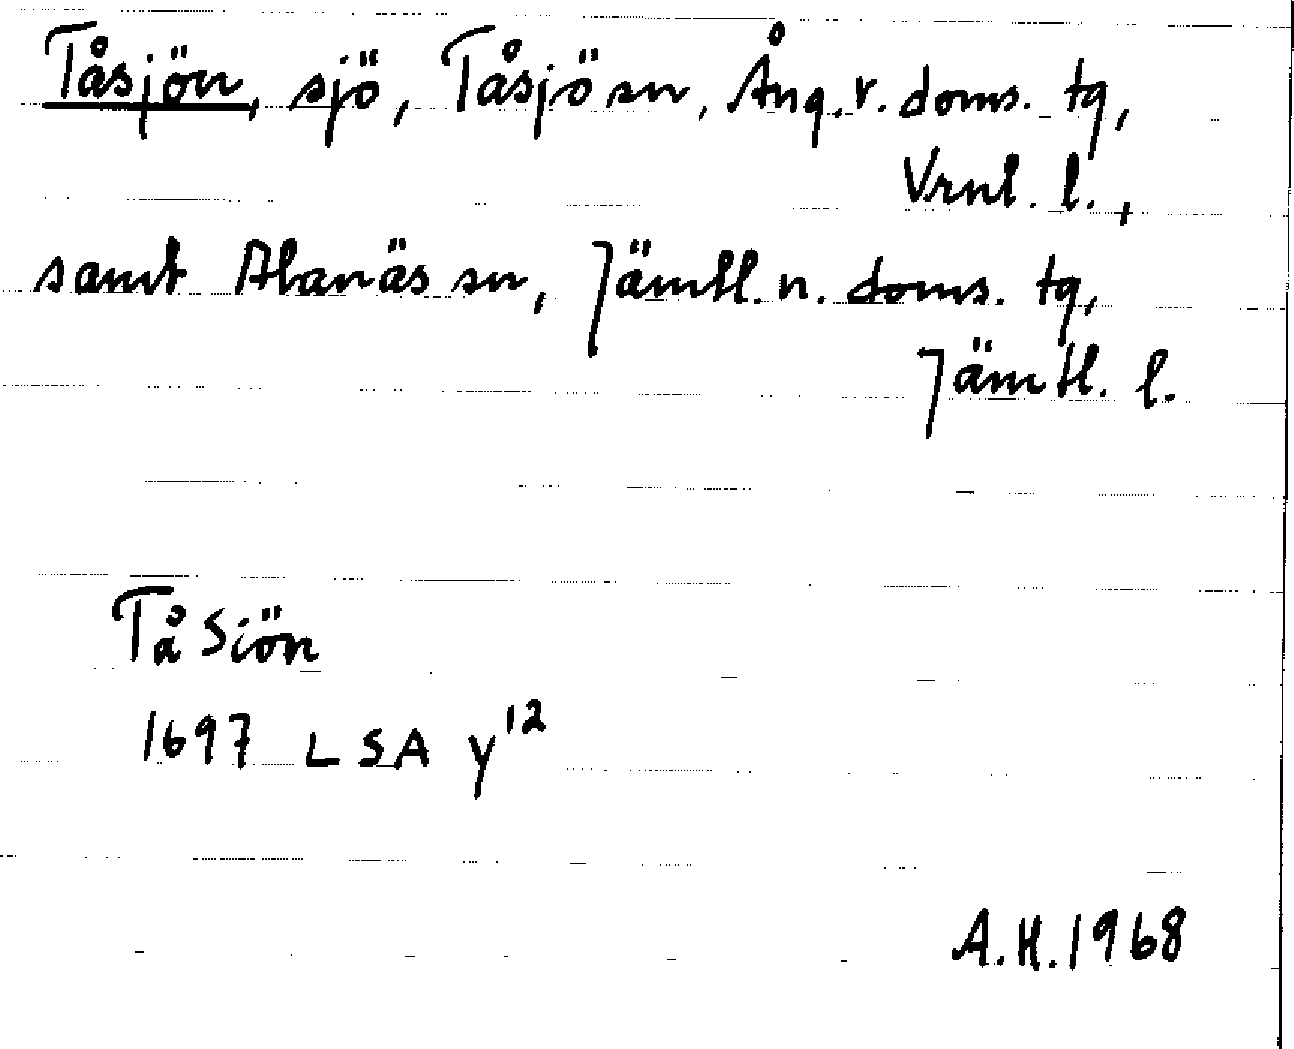 Tåsjön, sjö, Tåsjö sn, Ång. v. doms. tg,
Vrnl. l.,
samt Alanäs sn, Jämtl. n. doms. tg,
Jämtl. l.
Tå Siön
1697 LSA Y12
A.H. 1968